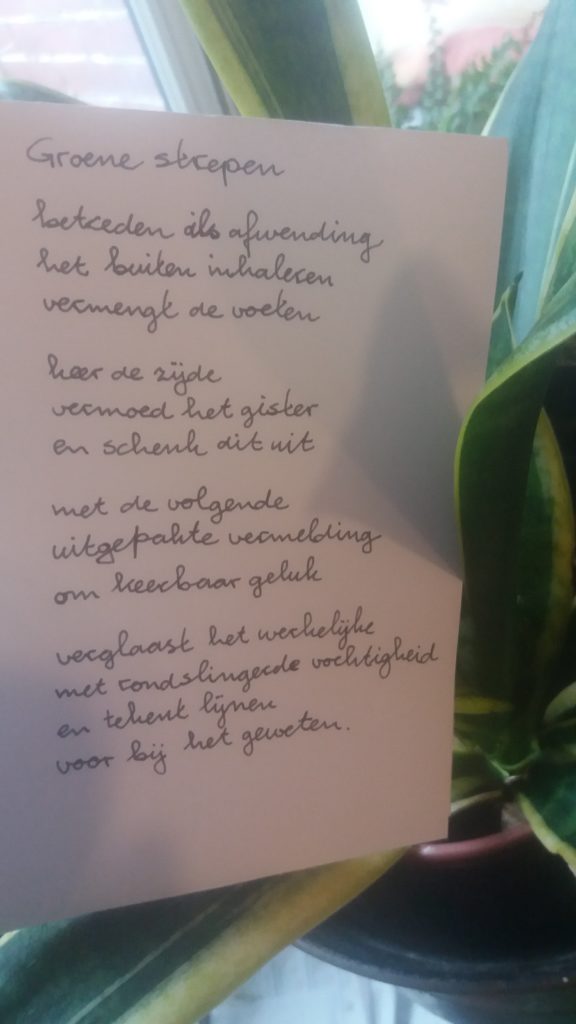 Groene strepen
betreden als afwending
het buiten inhaleren
vermengt de voeten
keer de zijde
vermoed het gister
en schenk dit uit
met de volgende
uitgepakte vermelding
om keerbaar geluk
verglaast het werkelijke
met rondslingerde vochtigheid
en tekent lijnen
voor bij het geweten.